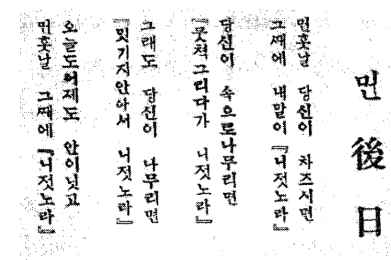 먼 後 日
먼훗날 당신이 차즈시면
그때에 내말이 『니젓노라』
당신이 속으로나무리면
『뭇쳑그리다가 니젓노라』
그래도 당신이 나무리면
『밋기지안아서 니젓노라』
오늘도어제도 안이닛고
먼훗날 그때에 『니젓노라』